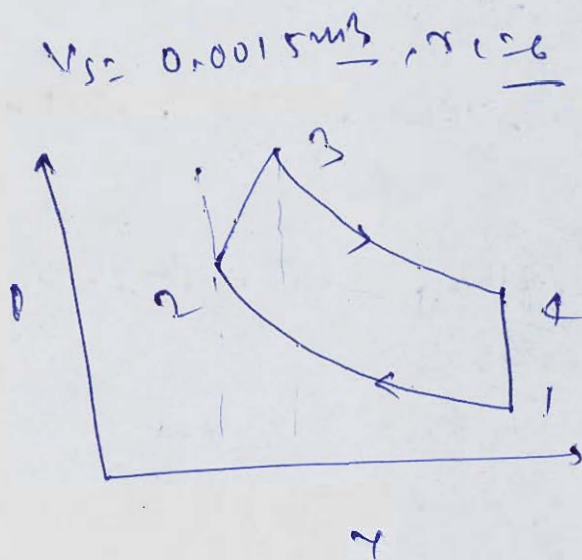 Vs= 0.0015m3, rc=6
3
2
4
1
P
V